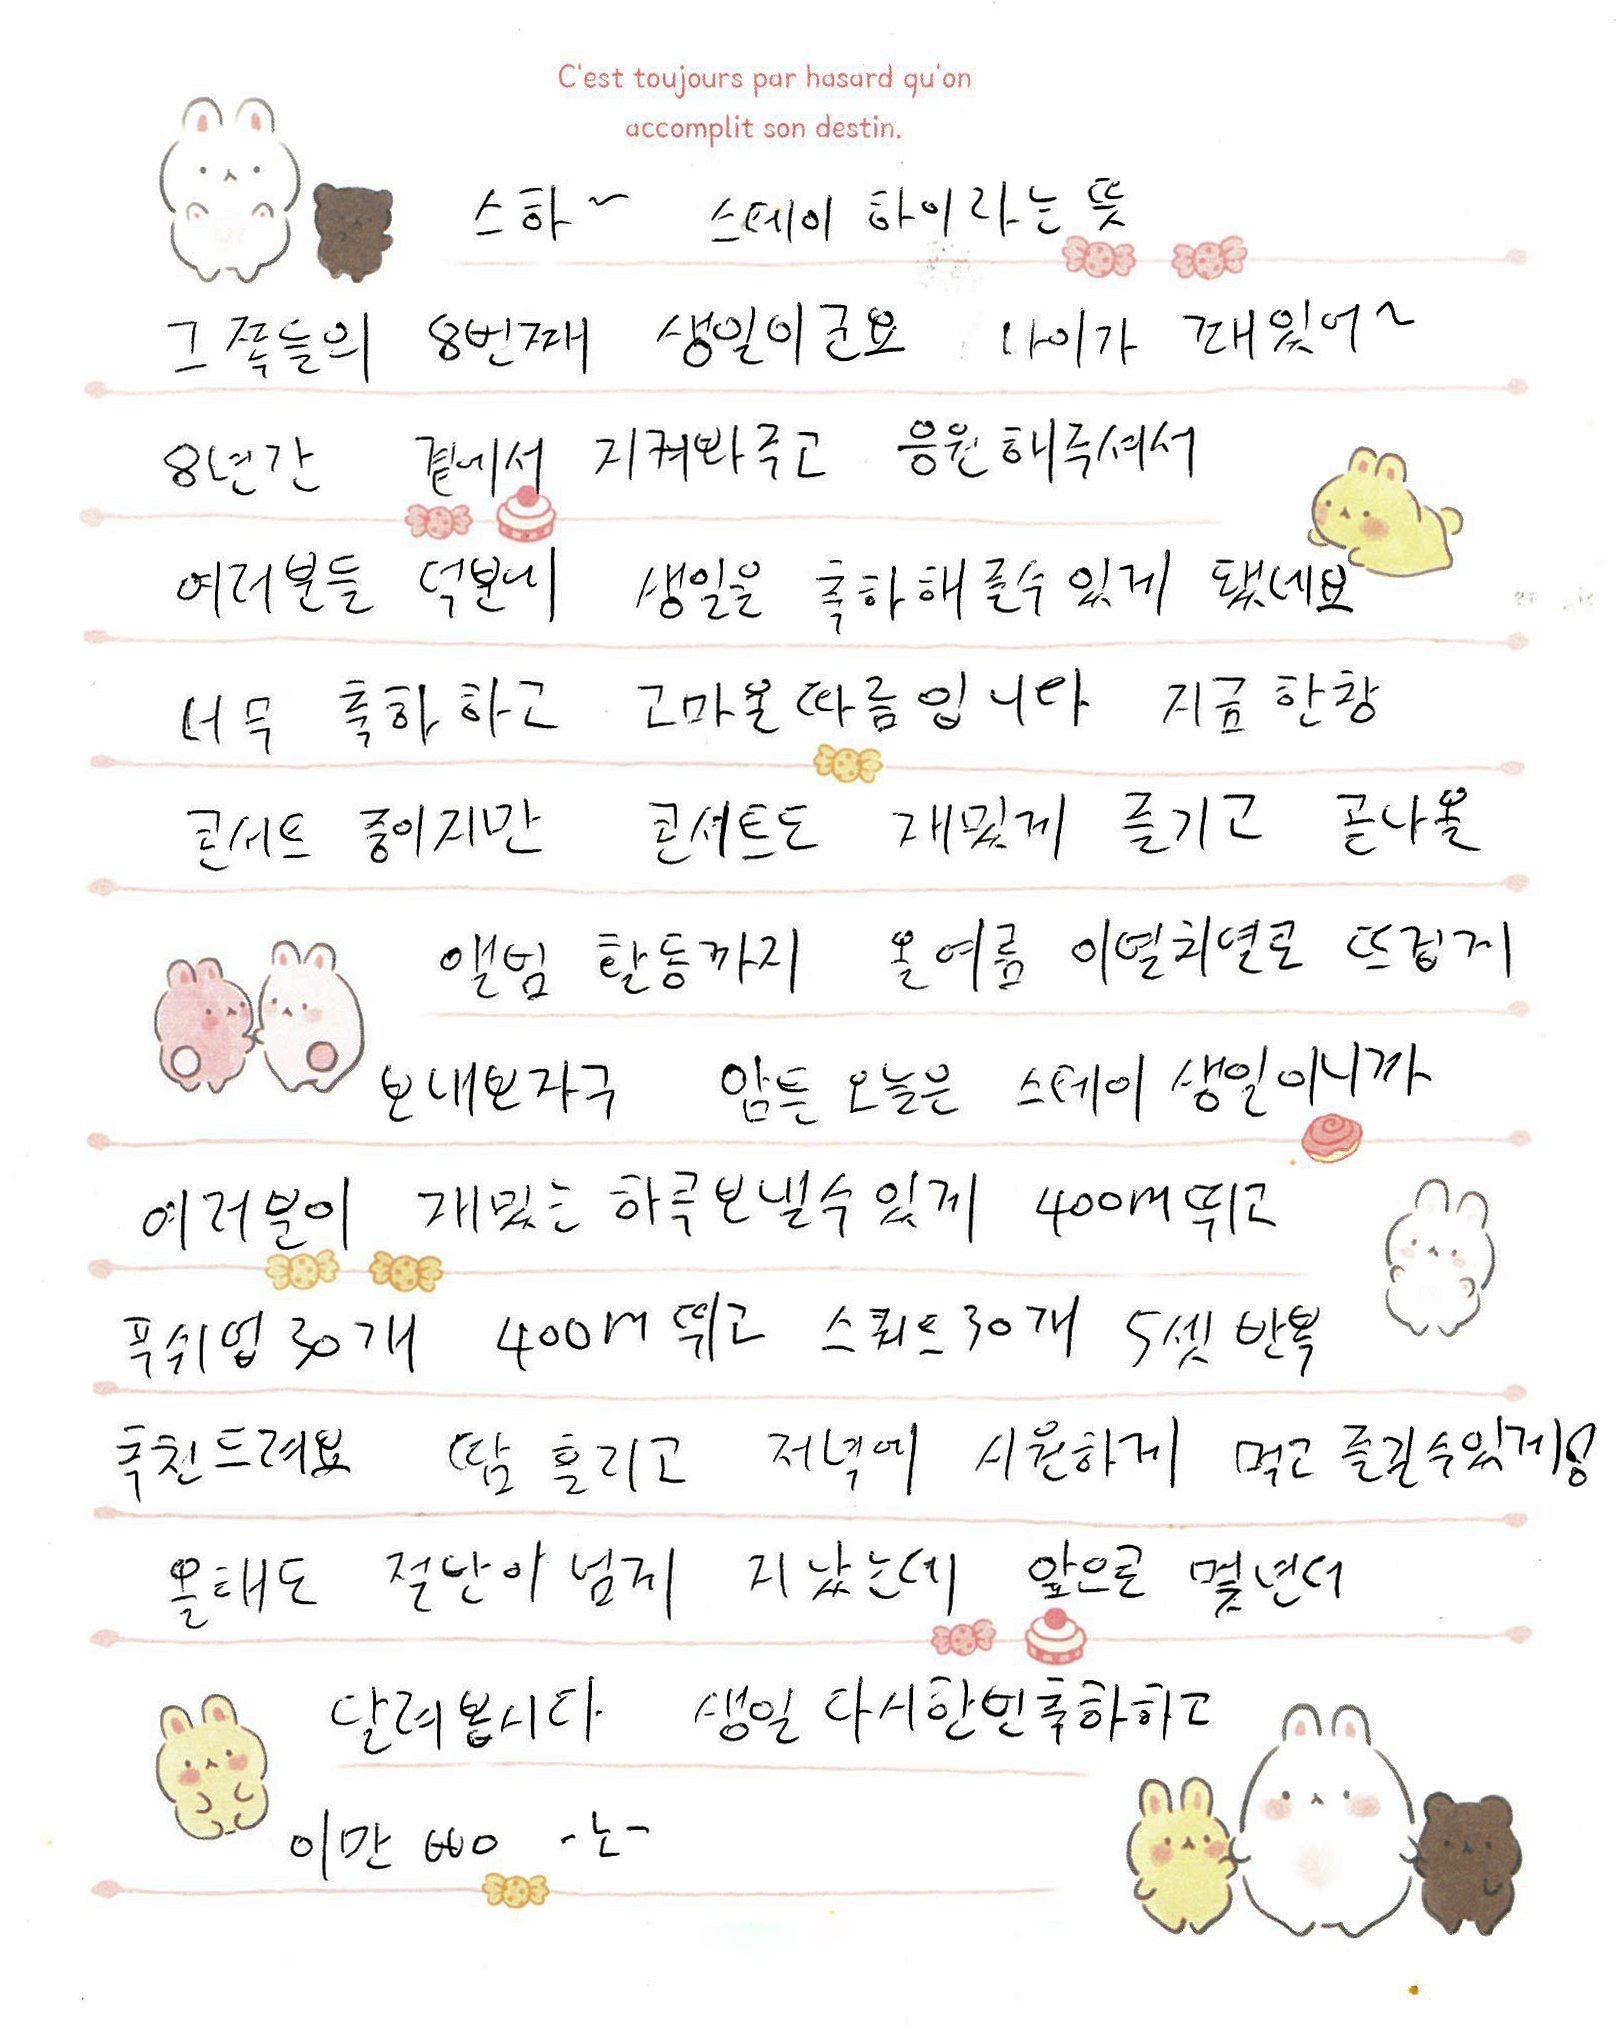 C'est toujours par hasard qu'on
accomplit son destin.
스하~ 스테이 하이라는 뜻
그쪽들의 8번째 생일이군요 나이가 꽤있어~
8년간 곁에서 지켜봐주고 응원해주셔서
여러분들 덕분에 생일을 축하해줄수있게 됐네요
너무 축하하고 고마울따름입니다 지금한창
콘서트 중이지만 콘서트도 재밌게 즐기고 곧나올
앨범 활동까지 올여름 이열치열로 뜨겁게
보내보자구 암튼 오늘은 스테이 생일이니까
여러분이 재밌는 하루보낼수있게 400m뛰고
푸쉬업30개 400m뛰고 스쿼트30개 5셋 반복
추천드려요 땀 흘리고 저녁에 시원하게 먹고 즐길수있게!
올해도 절반이 넘게 지났는데 앞으로 몇년더
달려봅시다 생일 다시한번축하하고
이만 뿅 -노-